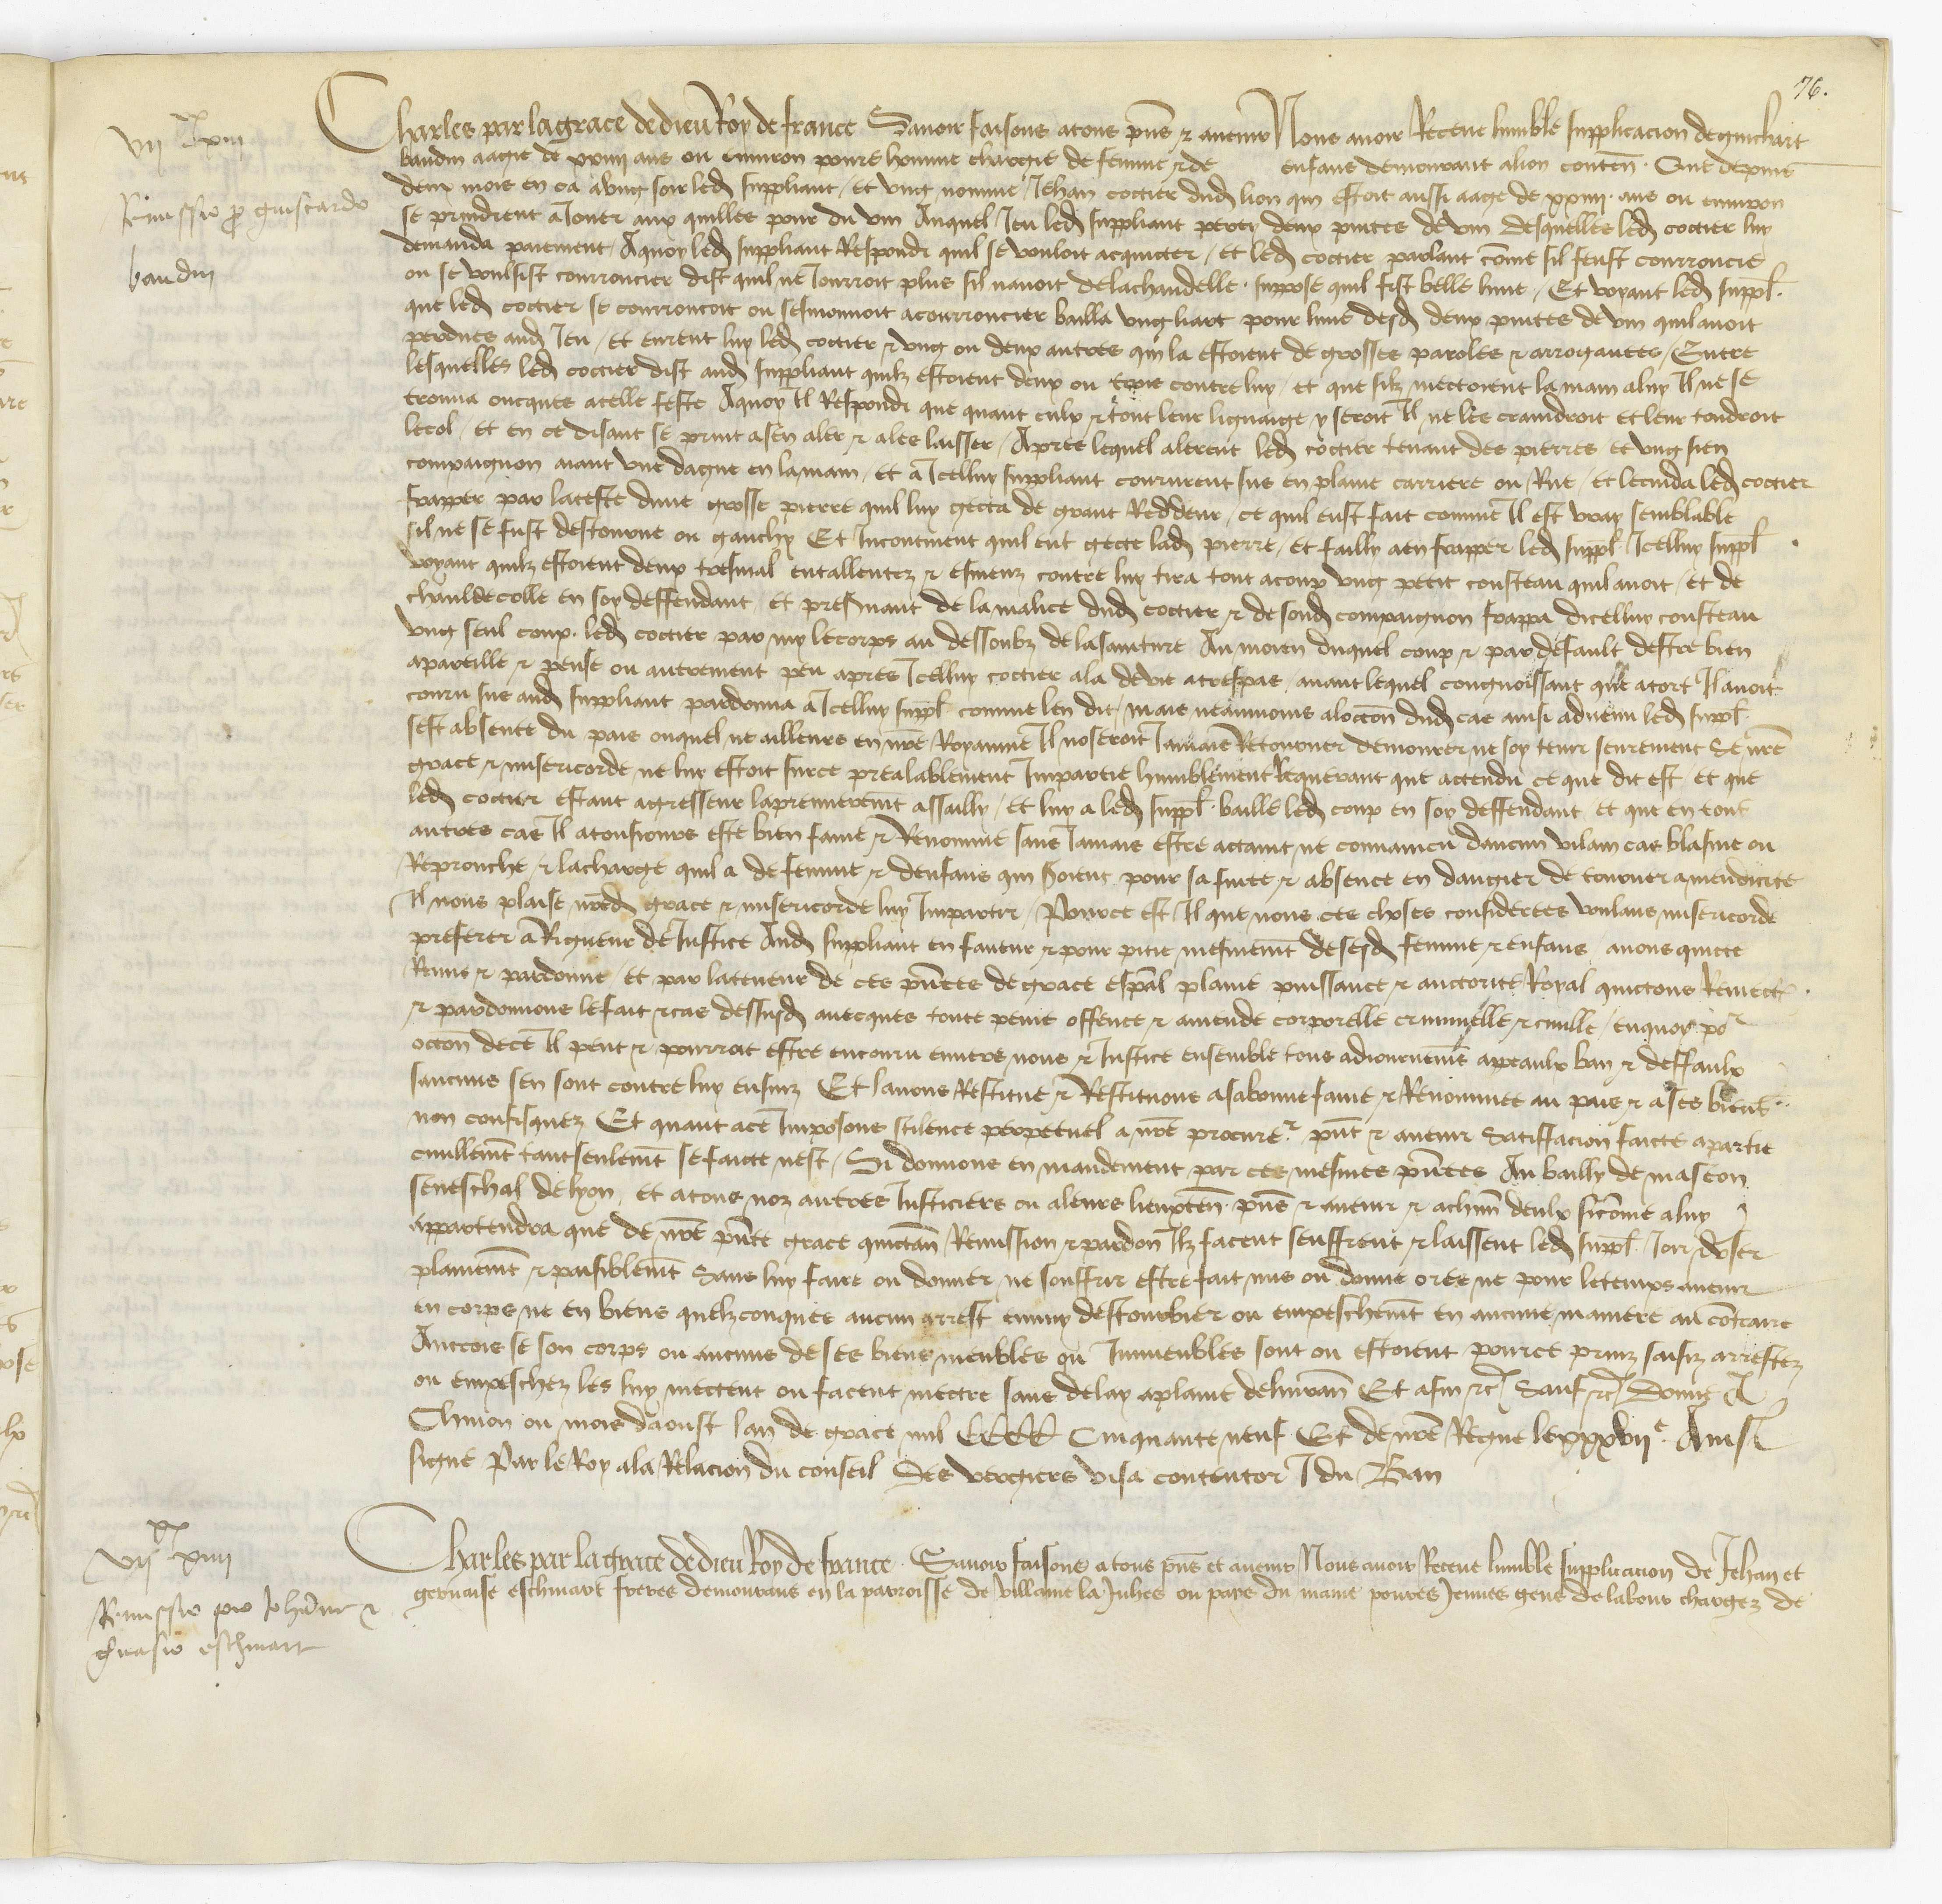 76.
Charles par la grace de dieu Roy de france Savoir faisons a tous pns̄ et avenir Nous avoir Receue humble supplicacion de guichart
vii xx xiii
baudin aagie de xxiiii ans ou environ povre homme chargie de femme et de enfans demourant a lion conten̄ Que depuis
Remissio pro guiscardo
deux mois en ca a ung soir led suppliant / et ung nomme Jehan cottier dud lion qui estoit aussi aage de xxiiii ans ou environ
se prindrent a Jouer aux quilles pour du vin Auquel Jeu led suppliant perdy deux pintes de vin desquelles led cottier luy
baudin
demanda paiement / Aquoy led suppliant Respondi quil se vouloit acquicter / et led cottier parlant cōme sil feust courroucie
ou se voulsist courroucier dist quil ne Jourroit plus sil navoit de la chandelle suppose quil fist belle lune / Et voyant led suppl.
que led cottier se courroucoit ou sesmouvoit a courroucier bailla ung liart pour lune desd deux pintes de vin quil avoit
perdues aud Jeu / et eurent luy led cottier et ung ou deux autres qui la estoient de grosses paroles et arrogantes / Entre
lesquelles led cottier dist aud suppliant quilz estoient deux ou trois contre luy / et que silz mectoient la main a luy Il ne se
trouva oncques a telle feste Aquoy Il Respondi que quant eulx et tout leur lignaige y seroit Il ne les craindroit et leur tondroit
le col / et en ce disant se print a sen aler et a les laisser / Apres lequel alerent led cottier tenant des pierres et ung sien
compaignon aiant une dague en la main / et a Icelluy suppliant coururent sus en plaine carriere ou Rue / et le cuida led cottier
frapper par la teste dune grosse pierre quil luy gecta de grant Reddeur / ce quil eust fait comme Il est vray semblable
sil ne se fust destourne ou ganchy Et Incontinent quil eut gecte lad pierre / et failly a en frapper led suppl. Icelluy suppl.
voyant quilz estoient deux tresmal entallentez et esmeuz contre luy tira tout a coup ung petit cousteau quil avoit / et de
chauldecolle en soy deffendant / et presumant de la malice dud cottier et de sond compaignon frappa dicelluy cousteau
ung seul coup led cottier par my le corps au dessoubz de la sainture Au moien duquel coup et par default destre bien
apareille et pense ou autrement peu apres Icelluy cottier ala de vie a trespas / avant lequel congnoissant que a tort Il avoit
couru sus aud suppliant pardonna a Icelluy suppl. comme len dit / mais neanmoins a loccōn dud cas ainsi advenu led suppl.
sest absente du pais ouquel ne ailleurs en nr̄e Royaume Il noseroit Jamais Retourner demourer ne soy tenir seurement se nr̄e
grace et misericorde ne luy estoit surce prealablement Impartie humblement Requerant que actendu ce que dit est et que
led cottier estant agresseur la premieremt̄ assailly / et luy a led suppl. baille led coup en soy deffendant / et que en tout
autres cas Il a tousjours este bien fame et Renomme sans Jamais estre actaint ne convaincu daucun vilain cas blasme ou
Reprouche / et la charge quil a de femme et denfans qui soient pour sa fuite et absence en dangier de tourner a mendicite
Il nous plaise nr̄ed grace et misericorde luy Impartir / Pource est Il que nous ces choses considerees voulans misericorde
preferer a Rigueur de Justice Aud suppliant en faveur et pour pitie mesmemt̄ de sesd femme et enfans avons quicte
Remis et pardonne / et par la teneur de ces pn̄tes de grace esp̄al plaine puissance et auctorite Royal quictons Remect̄
et pardonnons le fait et cas dessusd avecques toute peine offence et amende corporelle criminelle et civille / en quoy po r
occōn de ce Il peut et pourroit estre encouru envers nous et Justice ensemble tous adjournemēs appeaulx ban et deffaulx
saucuns sen sont contre luy ensuiz Et lavons Restitue et Restituons a sa bonne fame et Renommee au pais et a ses biens
non confisquez Et quant a ce Imposons silence perpetuel a nr̄e procure r pn̄t et avenir Satiffacion faicte a partie
civillemt̄ tant seulemt̄ se faicte nest / Si donnons en mandement par ces mesmes pn̄tes Au bailly de mascon
seneschal de lyon et a tous noz autres Justiciers ou a leurs lieuxten̄ pns̄ et avenir et a chūn deulx sicōme a luy
appartendra que de nr̄e pn̄te grace quictan̄ Remission et pardon Ilz facent seuffrent et laissent led suppl. Joir et user
plainemt̄ et paisiblemt̄ Sans luy faire ou donner ne souffrir estre fait mis ou donne ores ne pour le temps avenir
en corps ne en biens quelzconques aucun arrest ennuy destourbier ou empeschemt̄ en aucune maniere au cōtraire
Aincois se son corps ou aucuns de ses biens meubles ou Immeubles sont ou estoient pource prins saisiz arrestez
ou empeschez les luy mectent ou facent mectre sans delay a plaine delivran̄ Et afin etc Sauf etc Donne A
Chinon ou mois daoust lan de grace mil CCCC Cinquante neuf Et de nr̄e Regne le xxxvii e Ainsi
signe Par le Roy a la Relacion du conseil Des vergiers visa contentor J du Ban
vii xx xiiii
Charles par la grace de dieu Roy de france Savoir faisons a tous pns̄ et avenir Nous avoir Receue humble supplicacion de Jehan et
Remissio pro Johanne et
gervaise eschinart freres demourans en la parroisse de villaine la Juhes ou pays du maine povres Jeunes gens de labour chargez de
gervasio eschinart